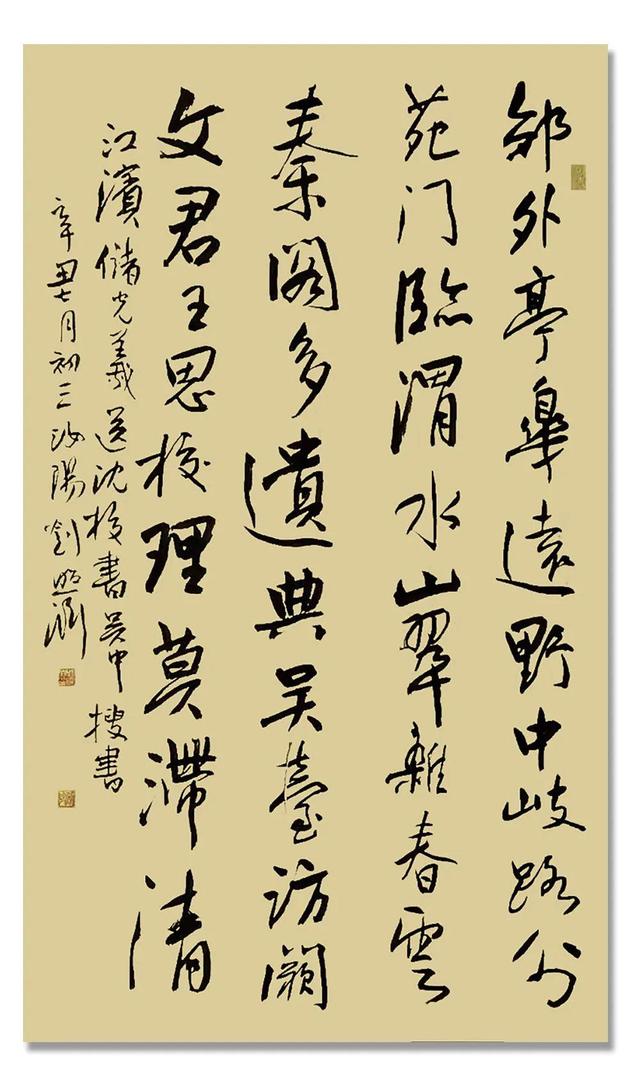 郊外亭皋遠野中岐路分
苑门臨渭水山翠雜春雲
秦阁多遺典吴臺访阙
文君王思校理莫滞清
江濱儲光羲送沈校書吴中搜書
辛丑七月初三汝陽劉照